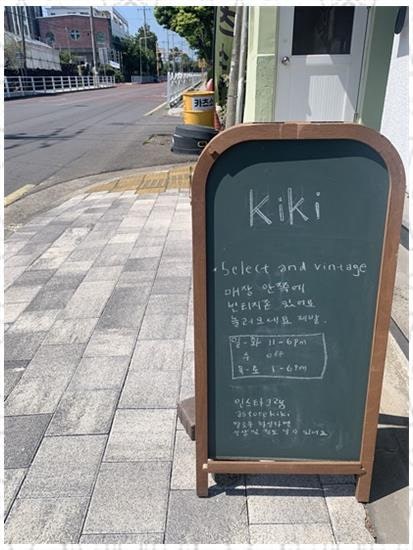 카츠
kiki
Select and vintage
매장 안쪽에
빈티지존 있어요
놀러오세요 제발.
일-화 11-6pm
수 off
목-토 11-6pm
인스타그램
astorekiki